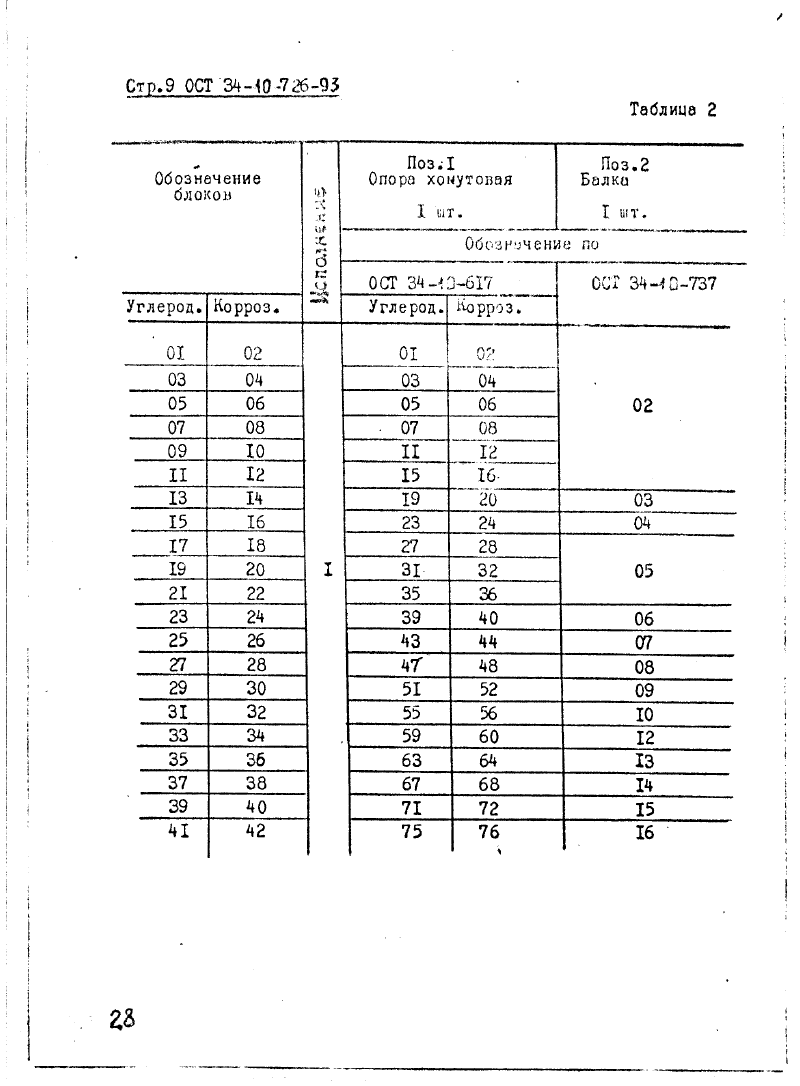 Стр.9 ОСТ 34-10-726-93
Таблица 2
Обозначение блоков | Исполнение | Поз.I Опора хомутовая I шт. | Поз.2 Балка I шт.
Обозначение по
ОСТ 34-10-617 | ОСТ 34-10-737
Углерод. | Корроз. | Углерод. | Корроз.
0I 02 0I 02
03 04 03 04
05 06 05 06 02
07 08 07 08
09 I0 II I2
II I2 I5 I6
I3 I4 I9 20 03
I5 I6 23 24 04
I7 I8 27 28
I9 20 I 3I 32 05
2I 22 35 36
23 24 39 40 06
25 26 43 44 07
27 28 47 48 08
29 30 5I 52 09
3I 32 55 56 I0
33 34 59 60 I2
35 36 63 64 I3
37 38 67 68 I4
39 40 7I 72 I5
4I 42 75 76 I6
28